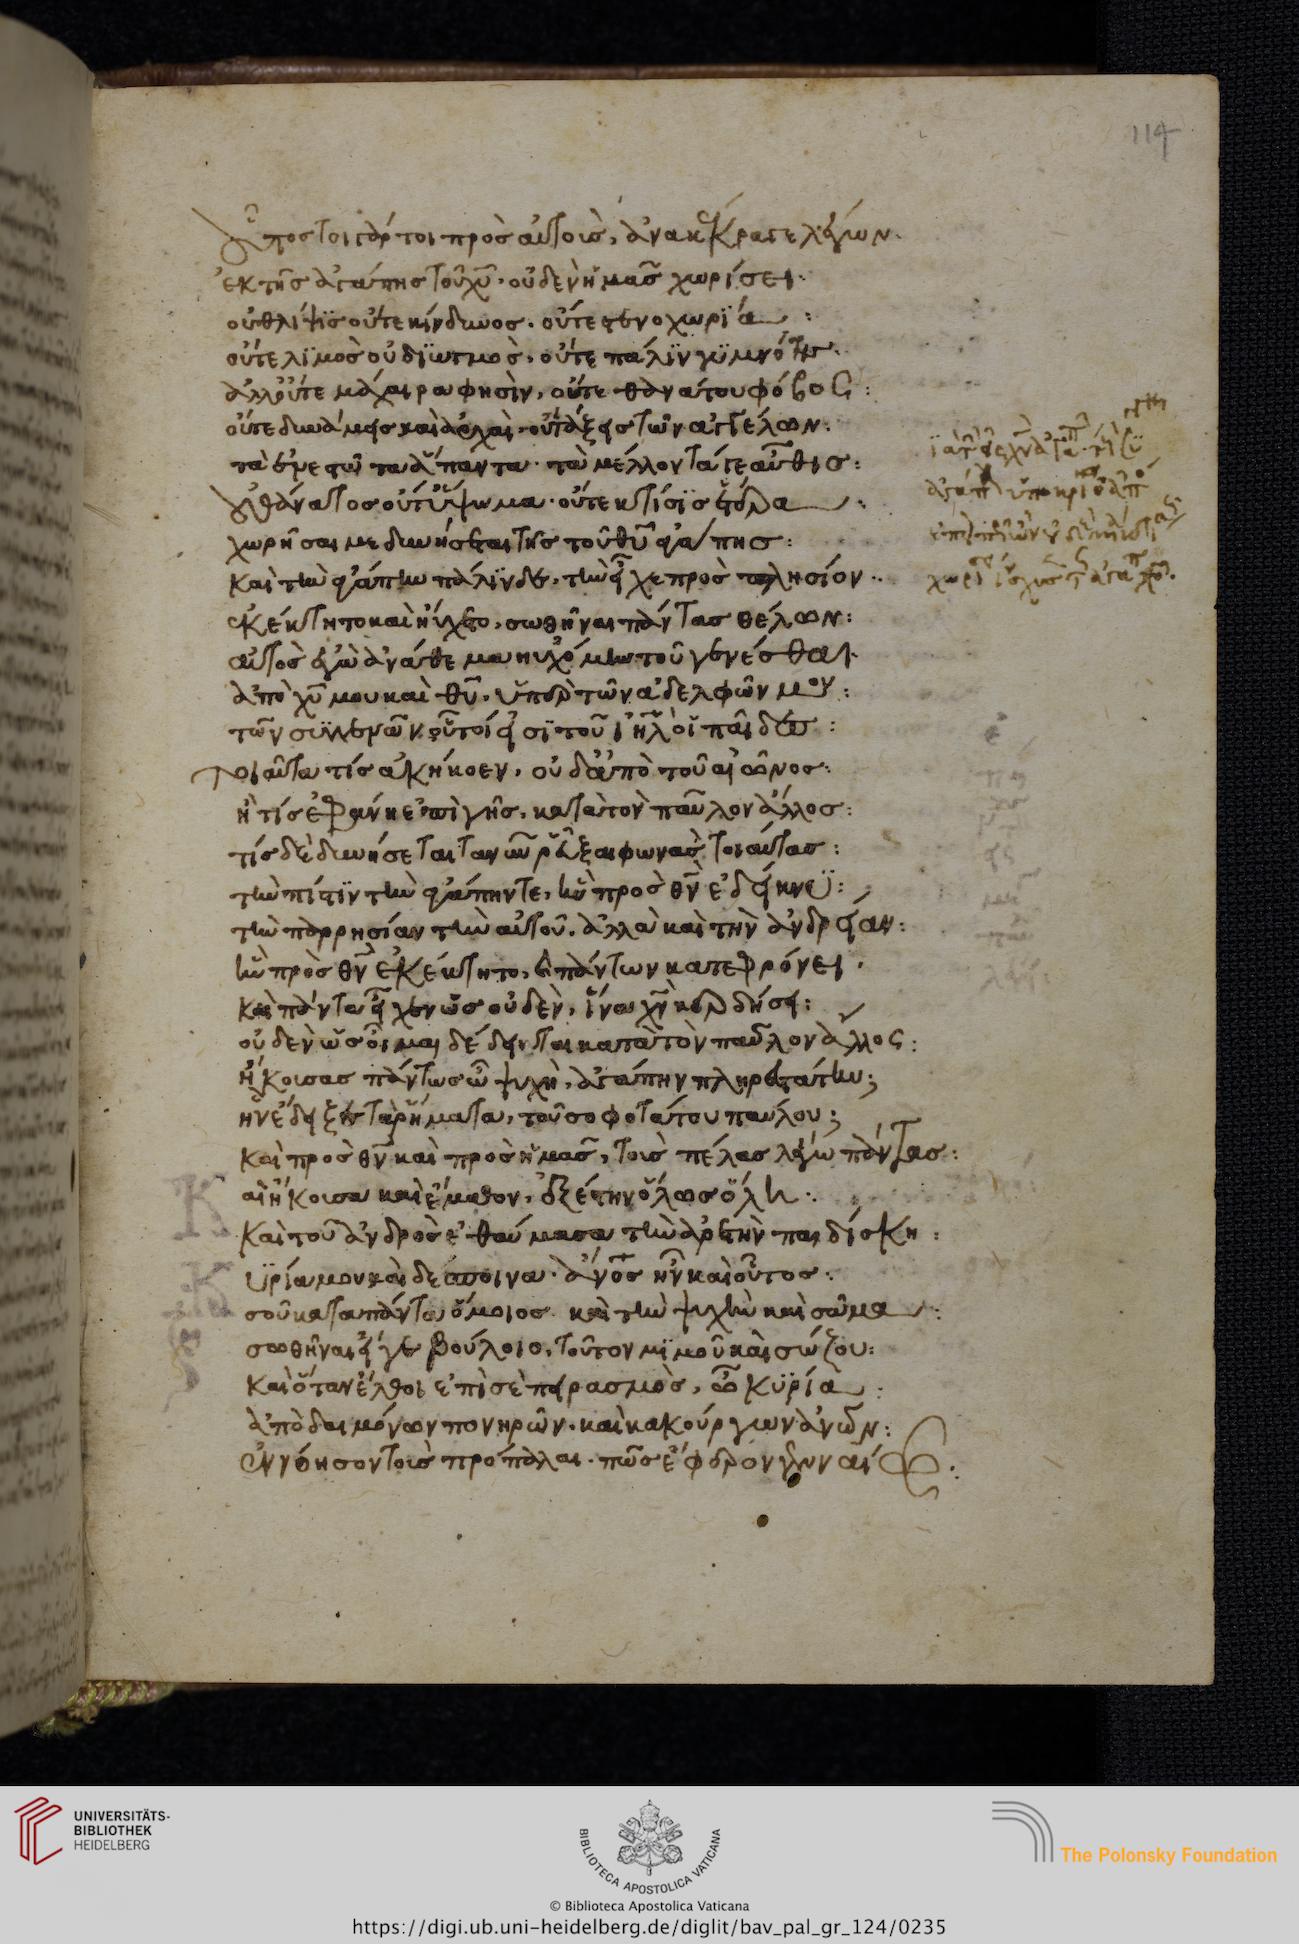 114
εἶπος τοι γάρ τοι πρὸς αὐτοὺς, ἀνακέκραγε λέγων.
ἐκ τῆς ἀγάπης τοῦ χυ· οὐδὲν ἡμᾶς χωρίσει·
οὐ θλίψις οὔτε κίνδυνος. οὔτε στενοχωρία:
οὔτε λιμὸς οὐ διωγμὸς, οὔτε πάλιν γυμνότης.
ἀλλ' οὔτε μάχαιρα φησὶν, οὔτε θανάτου φόβος:
οὔτε δυνάμεις καὶ ἀρχαὶ· οὐ τάξεις τῶν ἀγγέλων:
τὰ ἐνεστῶτα ἅπαντα· τὰ μέλλοντά τε αὖθις:
οὐ θάνατος οὔτ' ὕψωμα· οὔτε κτίσις ἑτέρα:
χωρῆσαι με δυνήσεται τῆς τοῦ θυ ἀγάπης:
καὶ τὴν ἀγάπην πάλιν δὲ, τὴν εἶχε πρὸς πλησίον·
ἐκέκτητο καὶ ηὔχετο, σωθῆναι πάντας θέλων:
αὐτὸς ἐγὼ ἀνάθεμα ηὐχόμην τοῦ γενέσθαι·
ἀπὸ χυ μου καὶ θυ, ὑπὲρ τῶν ἀδελφῶν μου:
τῶν συγγενῶν οὗτοί εἰσι τοῦ ιηλ οἱ παῖδες:
τοιαῦτα τίς ἀκήκοεν, οὐδ' ἀπὸ τοῦ αἰῶνος:
ἢ τίς ἐφάνη ἐπὶ γῆς, κατὰ τὸν παῦλον ἄλλος:
τίς δὲ δυνήσεται τανῦν ῥῆξαι φωνὰς τοιαύτας:
τὴν πίστιν τὴν ἀγάπην τε, ἣν πρὸς θν ἐδείκνυ:
τὴν παρρησίαν τὴν αὐτοῦ, ἀλλὰ καὶ τὴν ἀνδρείαν:
ἣν πρὸς θν ἐκέκτητο, πάντων κατεφρόνει.
καὶ πάντα εἶχεν ὡς οὐδὲν, ἵνα χν κερδήσει:
οὐδὲν ὡς οἶμαι δέδεικται κατὰ τὸν παῦλον ἄλλος:
ἤκουσας πάντως ὦ ψυχὴ, ἀγάπην πληρεστάτην;
ἣν ἔδειξε τὰ ῥήματα, τοῦ σοφοτάτου παύλου;
καὶ πρὸς θν καὶ πρὸς ἡμᾶς, τοὺς πέλας λέγω πάντας:
αἳ ἤκουσα καὶ ἔμαθον, ἐξέστην ὅλως ὅλη:
καὶ τοῦ ἀνδρὸς ἐθαύμασα τὴν ἀρετὴν παιδίσκη:
κυρία μου καὶ δέσποινα· ἄνος ἦν καὶ οὗτος:
σοῦ κατὰ πάντα ὅμοιος καὶ τὴν ψυχὴν καὶ σῶμα:
σωθῆναι εἴγε βούλοιο, τοῦτον μιμοῦ καὶ σώζου:
καὶ ὅταν ἔλθοι ἐπὶ σὲ πειρασμὸς, ὦ κυρία:
ἀπὸ δαιμόνων πονηρῶν. καὶ κακούργων ἀνων:
ἐννόησον τοὺς προπάλαι. πῶς ἔφερον γενναίως:
UNIVERSITÄTS-
BIBLIOTHEK
HEIDELBERG
BIBLIOTECA APOSTOLICA VATICANA
The Polonsky Foundation
© Biblioteca Apostolica Vaticana
https://digi.ub.uni-heidelberg.de/diglit/bav_pal_gr_124/0235